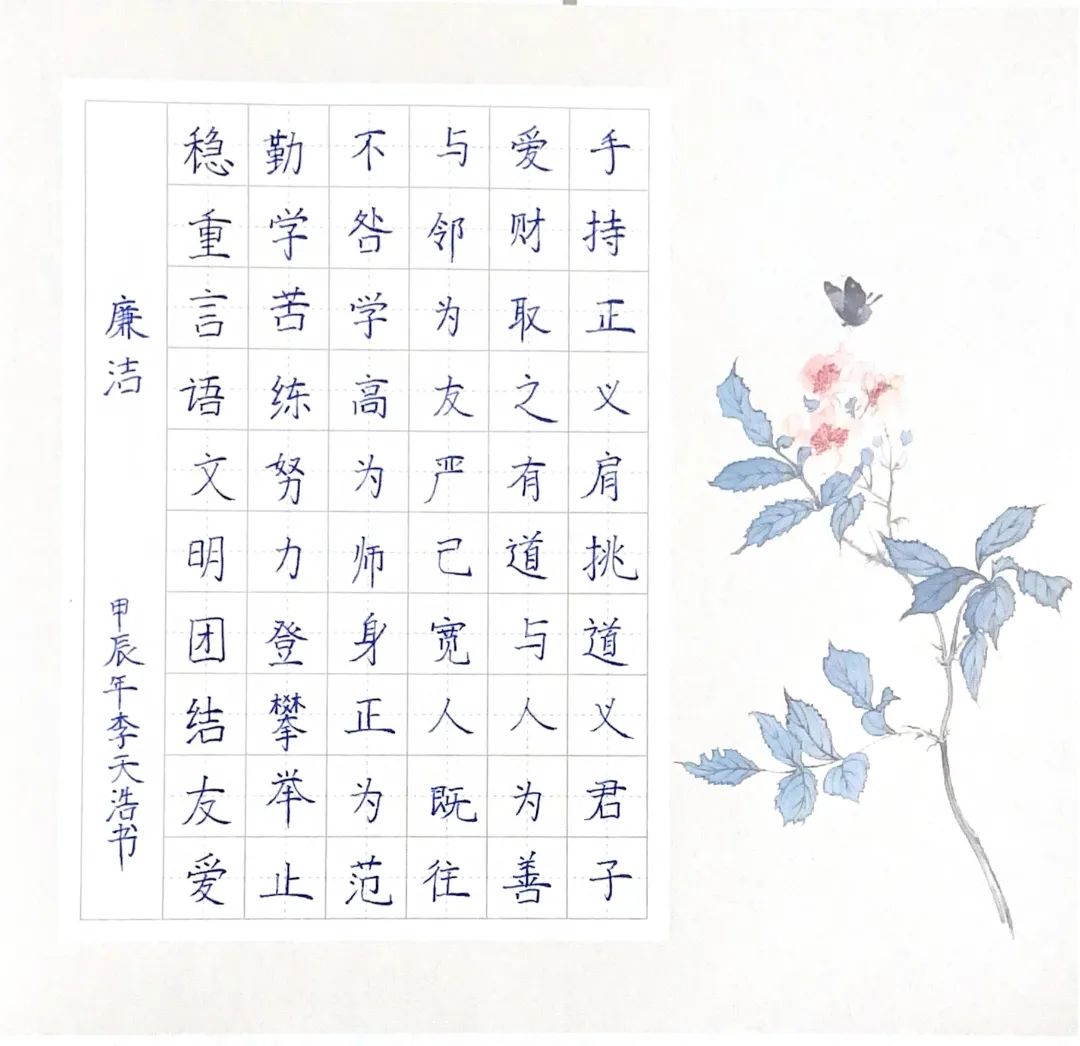 手持正义肩挑道义君子
爱财取之有道与人为善
与邻为友严己宽人既往
不咎学高为师身正为范
勤学苦练努力登攀举止
稳重言语文明团结友爱
廉洁
甲辰年李天浩书